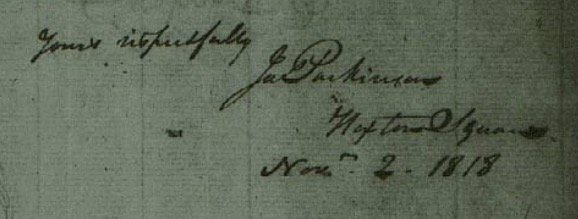 Yours respectfully
Jas Parkinson
Hoxton Square.
Novr. 2. 1818